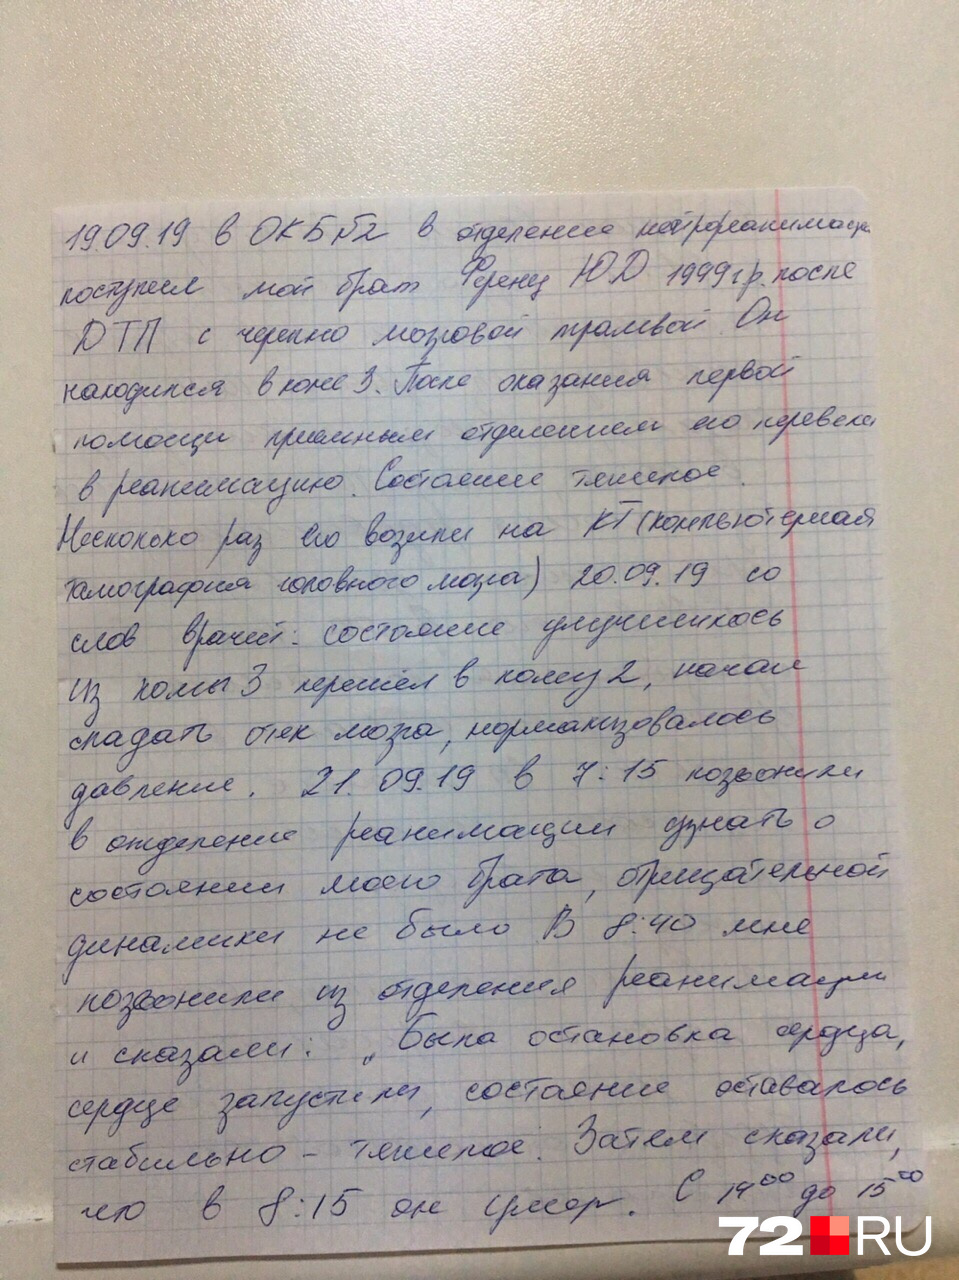 19.09.19 в ОКБ №2 в отделение нейрореанимации
поступил мой брат Ференц ЮД 1999 г.р. после
ДТП с черепно мозговой травмой. Он
находился в коме 3. После оказания первой
помощи приемным отделением его перевели
в реанимацию. Состояние тяжелое.
Несколько раз его возили на КТ (компьютерная
томография головного мозга) 20.09.19 со
слов врачей: состояние улучшилось
из комы 3 перешёл в кому 2, начал
спадать отек мозга, нормализовалось
давление. 21.09.19 в 7:15 позвонили
в отделение реанимации узнать о
состоянии моего брата, отрицательной
динамики не было В 8:40 мне
позвонили из отделения реанимации
и сказали: „Была остановка сердца,
сердце запустили, состояние оставалось
стабильно - тяжелое. Затем сказали,
что в 8:15 он умер. С 14⁰⁰ до 15⁰⁰
72.RU